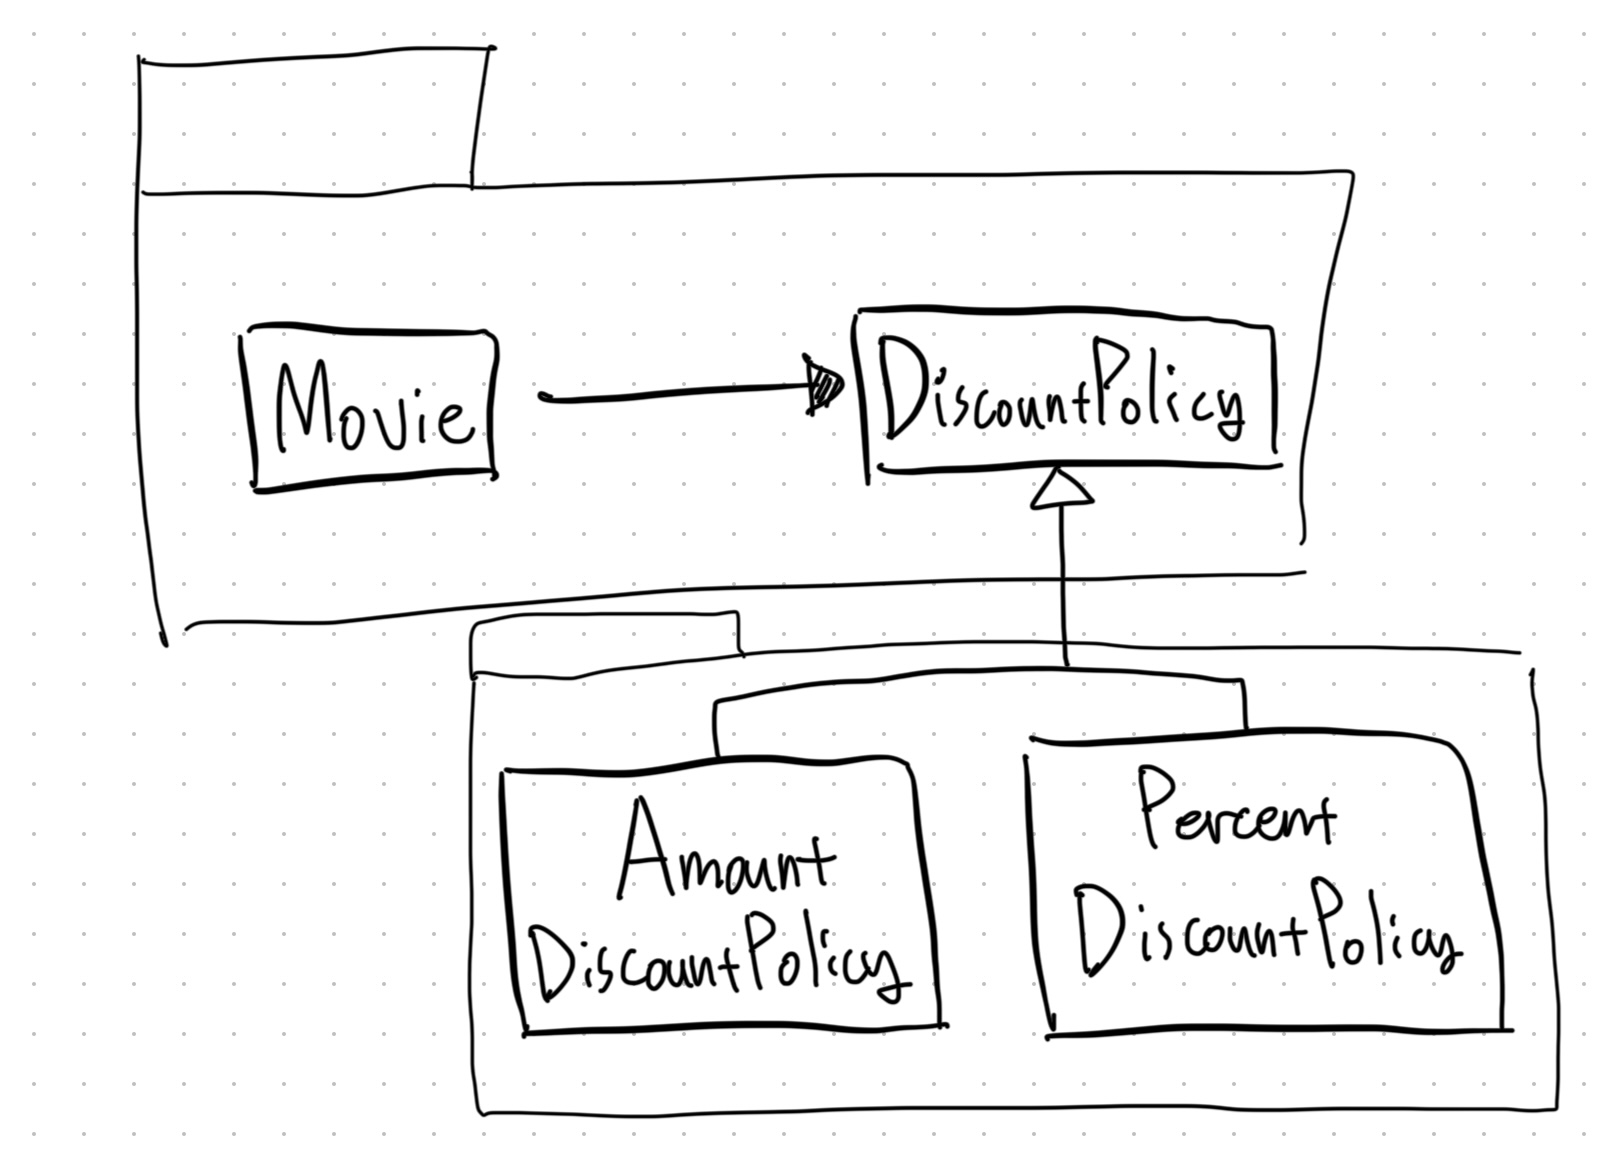 Movie
DiscountPolicy
Amount
DiscountPolicy
Percent
DiscountPolicy